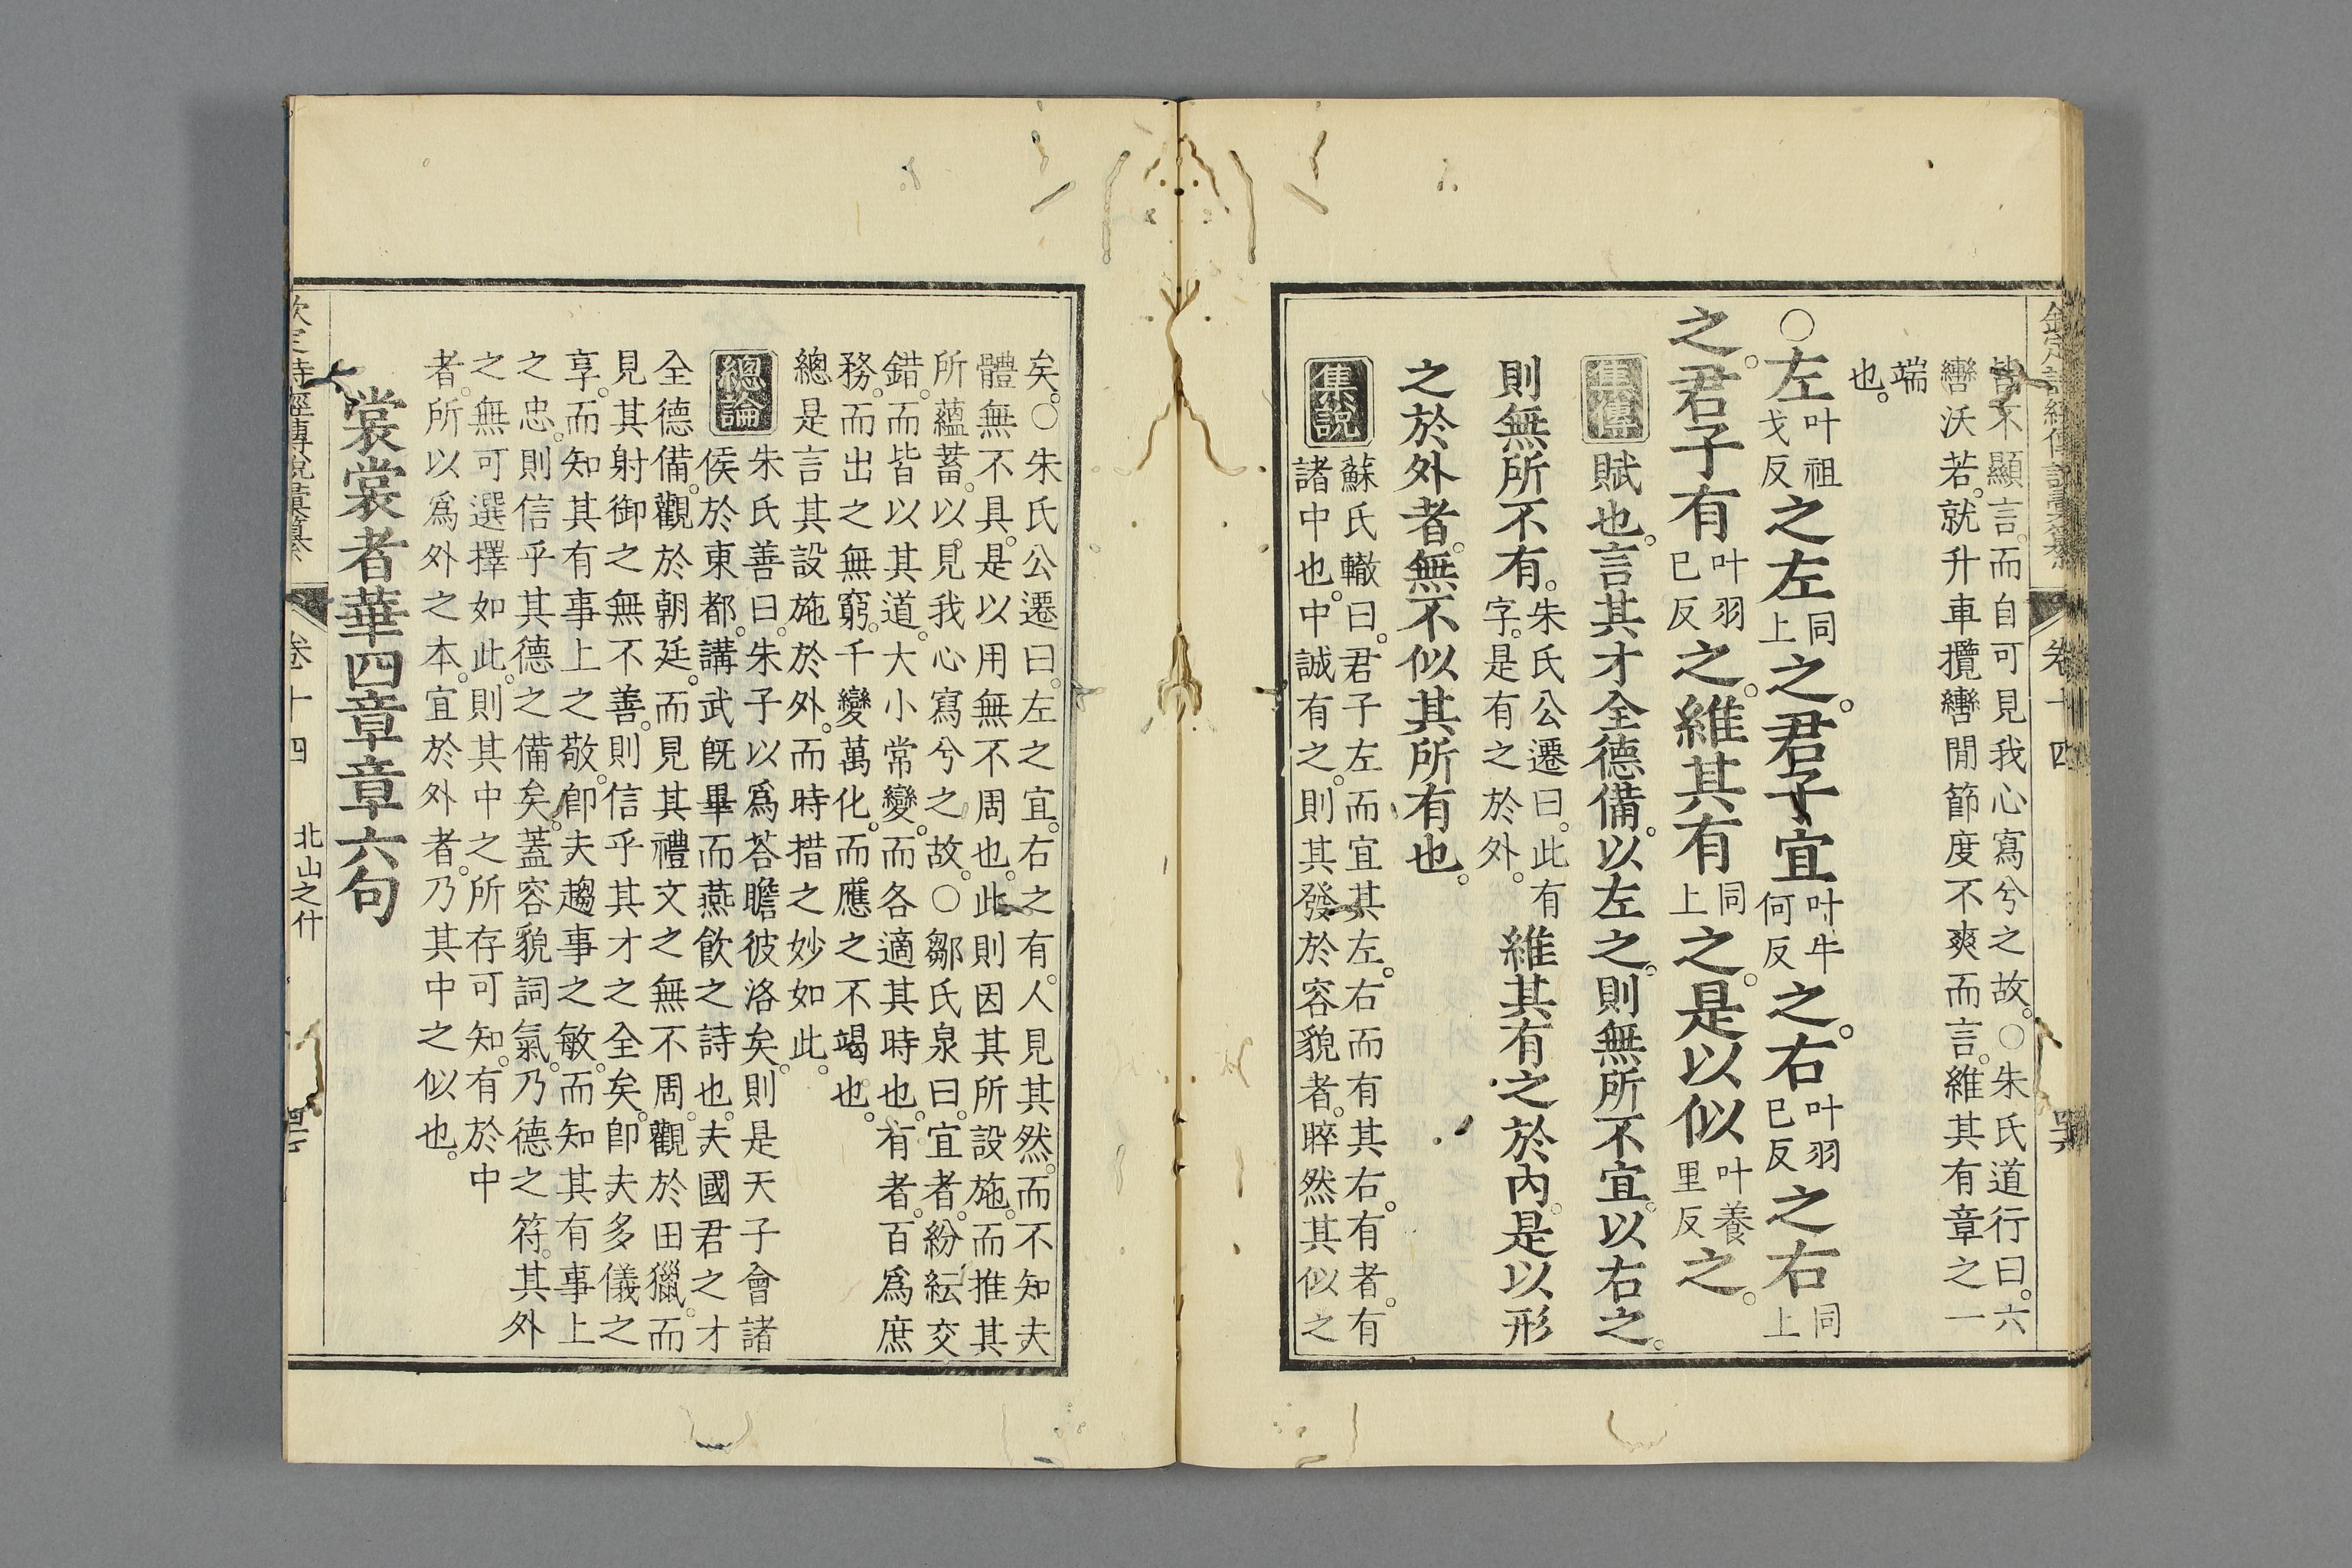 欽定詩經傳說彙纂 卷十四
皆不顯言。而自可見我心寫兮之故。○朱氏道行曰。六
轡沃若。就升車攬轡閒節度不爽而言。維其有章之一
端
也。
○左叶祖戈反之左同上之。君子宜叶牛何反之。右叶羽已反之右同上
之。君子有叶羽已反之。維其有同上之。是以似叶養里反之。
集傳 賦也。言其才全德備。以左之。則無所不宜。以右之。
則無所不有。朱氏公遷曰。此有字。是有之於外。維其有之於內。是以形
之於外者。無不似其所有也。
集說 蘇氏轍曰。君子左而宜其左。右而有其右。有者。有
諸中也。中誠有之。則其發於容貌者。睟然其似之
矣。○朱氏公遷曰。左之宜。右之有。人見其然。而不知夫
體無不具。是以用無不周也。此則因其所設施。而推其
所蘊蓄。以見我心寫兮之故。○鄒氏泉曰。宜者。紛紜交
錯。而皆以其道。大小常變。而各適其時也。有者。百爲庶
務。而出之無窮。千變萬化。而應之不竭也。
總是言其設施於外。而時措之妙如此。
總論 朱氏善曰。朱子以爲荅瞻彼洛矣。則是天子會諸
侯於東都。講武旣畢而燕飮之詩也。夫國君之才
全德備。觀於朝廷。而見其禮文之無不周。觀於田獵。而
見其射御之無不善。則信乎其才之全矣。卽夫多儀之
享。而知其有事上之敬。卽夫趨事之敏。而知其有事上
之忠。則信乎其德之備矣。蓋容貌詞氣。乃德之符。其外
之無可選擇如此。則其中之所存可知。有於中
者。所以爲外之本。宜於外者。乃其中之似也。
裳裳者華四章章六句
欽定詩經傳說彙纂 卷十四 北山之什